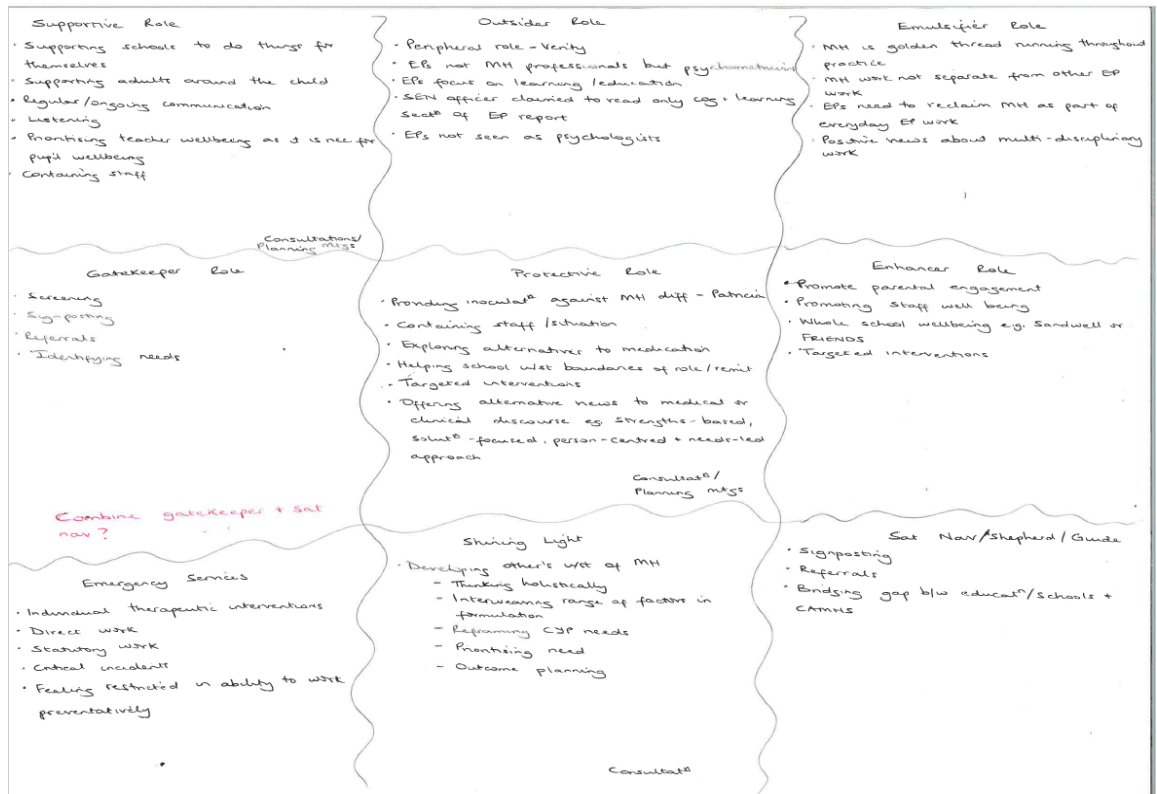 Supportive Role
· Supporting schools to do things for
themselves
· Supporting adults around the child
· Regular/ongoing communication
· Listening
· Prioritising teacher wellbeing as it is nec for
pupil wellbeing
· Containing staff
Consultations/
Planning mtgs
Outsider Role
· Peripheral role - Verity
· EPs not MH professionals but psychometricians
· EPs focus on learning/education
· SEN officer claimed to read only cog + learning
sectⁿ of EP report
· EPs not seen as psychologists
Emulsifier Role
· MH is golden thread running throughout
practice
· MH work not separate from other EP
work
· EPs need to reclaim MH as part of
everyday EP work
· Positive news about multi-disciplinary
work
Gatekeeper Role
· Screening
· Signposting
· Referrals
· Identifying needs
Combine gatekeeper + sat
nav?
Protective Role
· Providing inoculatⁿ against MH diff - Patricia
· Containing staff/situation
· Exploring alternatives to medication
· Helping school u/st boundaries of role/remit
· Targeted interventions
· Offering alternative news to medical or
clinical discourse eg. strengths-based,
solutⁿ-focused, person-centred + needs-led
approach
Consultatⁿ/
Planning mtgs
Enhancer Role
· Promote parental engagement
· Promoting staff well being
· Whole school wellbeing e.g. Sandwell or
FRIENDS
· Targeted interventions
Emergency Services
· Individual therapeutic interventions
· Direct work
· Statutory work
· Critical incidents
· Feeling restricted in ability to work
preventatively
Shining Light
· Developing other's u/st of MH
- Thinking holistically
- Interweaving range of factors in
formulation
- Reframing CYP needs
- Prioritising need
- Outcome planning
Consultatⁿ
Sat Nav/Shepherd/Guide
· Signposting
· Referrals
· Bridging gap b/w educatⁿ/schools +
CAMHS